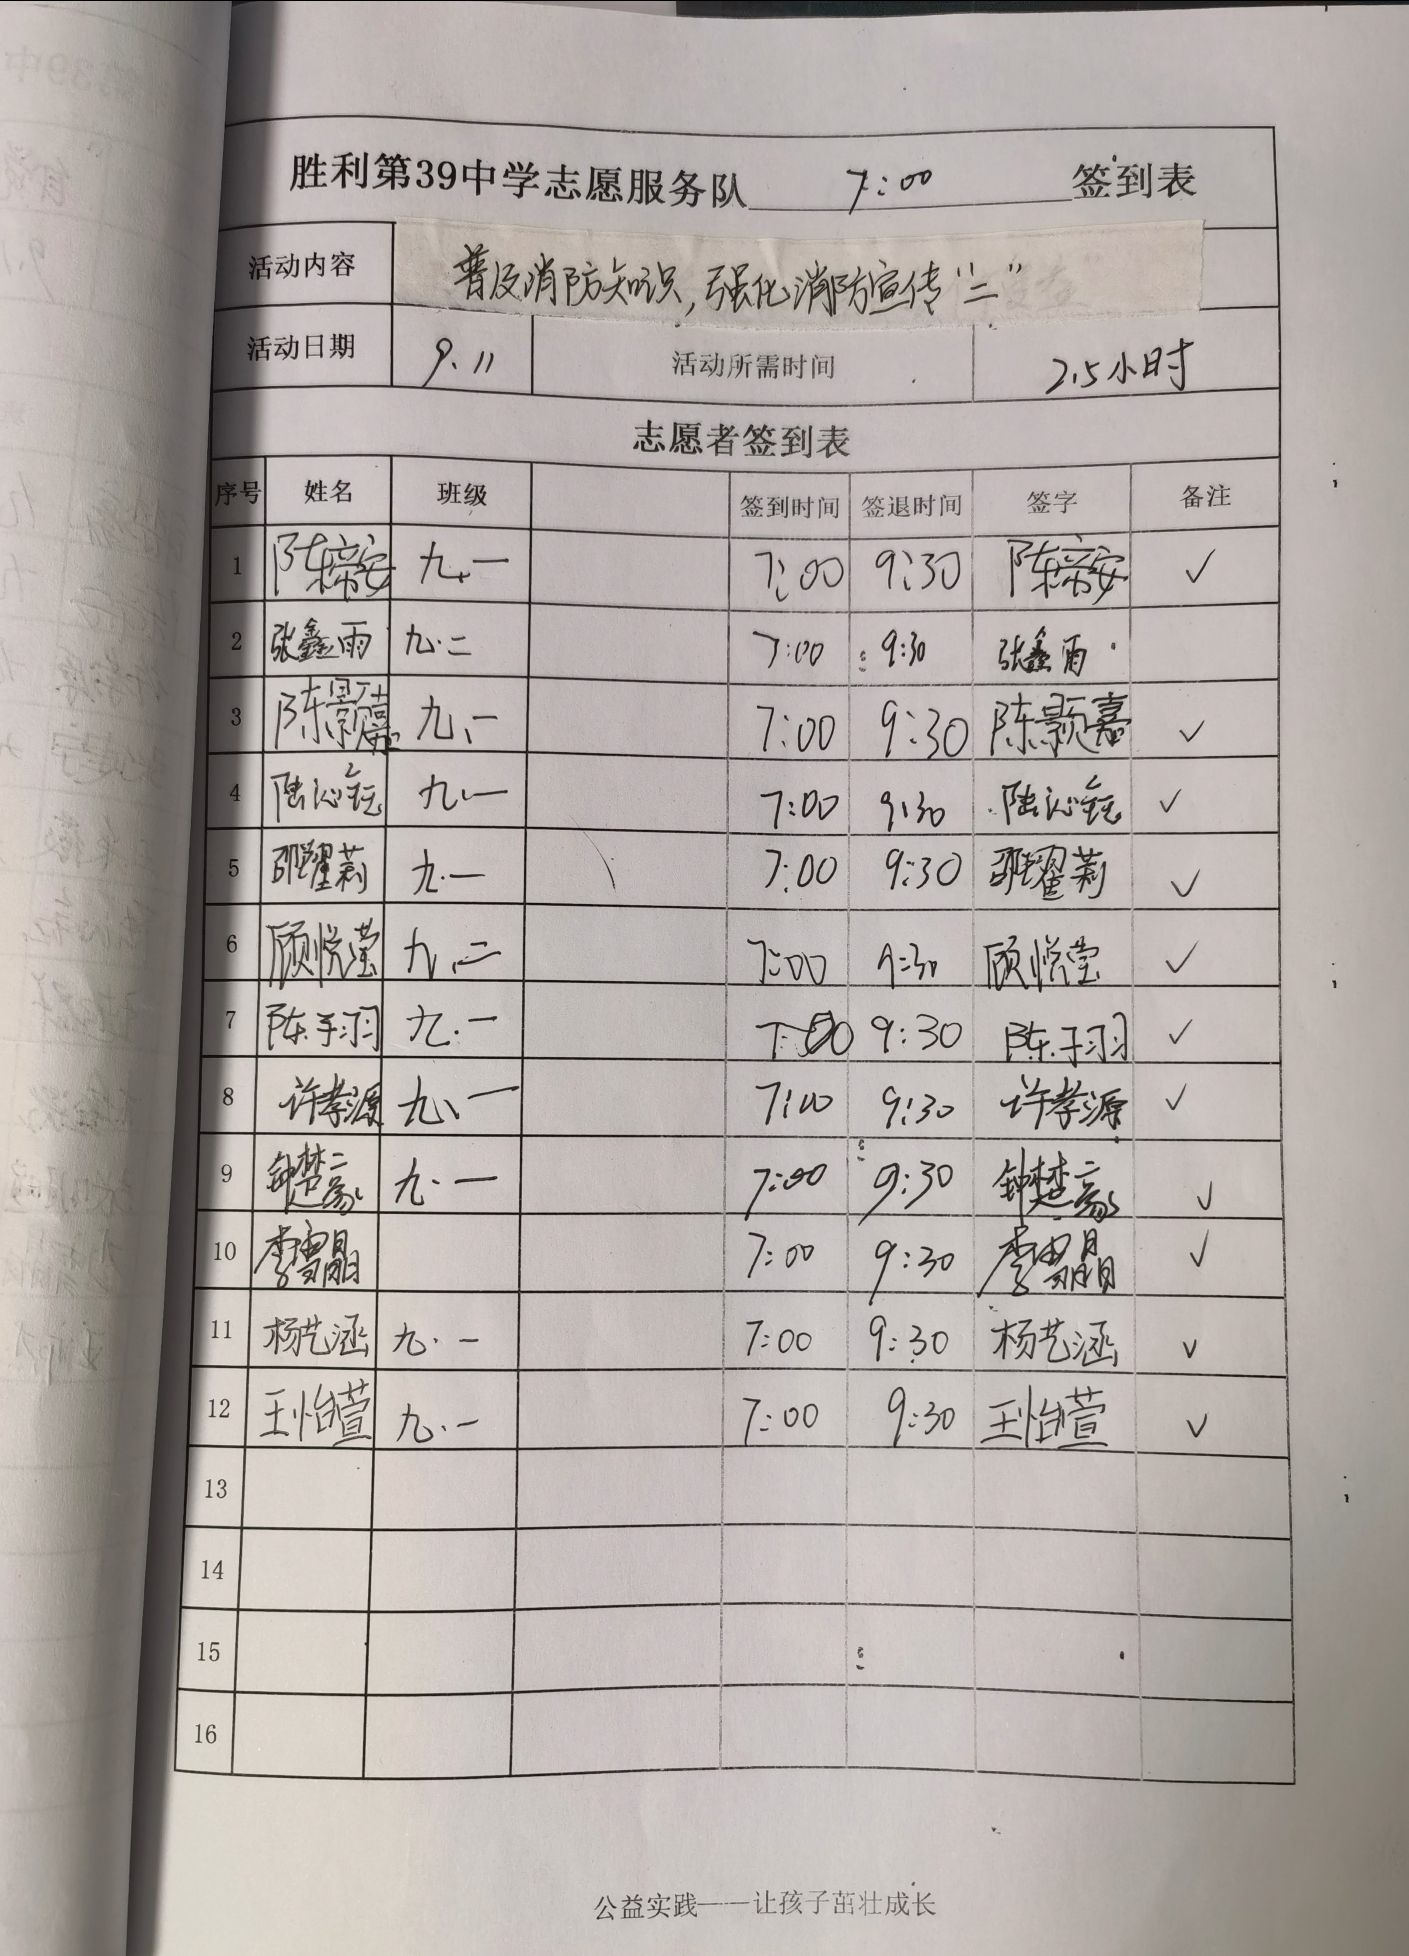 胜利第39中学志愿服务队 7:00 签到表
活动内容 普及消防知识,强化消防宣传"二"
活动日期 9.11 活动所需时间 2.5小时
志愿者签到表
序号 姓名 班级 签到时间 签退时间 签字 备注
1 陈帝安 九.一 7:00 9:30 陈帝安 ✓
2 张鑫雨 九.二 7:00 9:30 张鑫雨
3 陈颢嘉 九、一 7:00 9:30 陈颢嘉 ✓
4 陆沁钰 九.一 7:00 9:30 陆沁钰 ✓
5 邵耀莉 九.一 7:00 9:30 邵耀莉 ✓
6 顾悦滢 九.二 7:00 9:30 顾悦莹 ✓
7 陈子羽 九.一 7:00 9:30 陈子羽 ✓
8 许孝源 九、一 7:00 9:30 许孝源 ✓
9 钟楚豪 九.一 7:00 9:30 钟楚豪 ✓
10 李 7:00 9:30 李 ✓
11 杨艺涵 九.一 7:00 9:30 杨艺涵 ✓
12 王怡萱 九.一 7:00 9:30 王怡萱 ✓
13
14
15
16
公益实践——让孩子茁壮成长